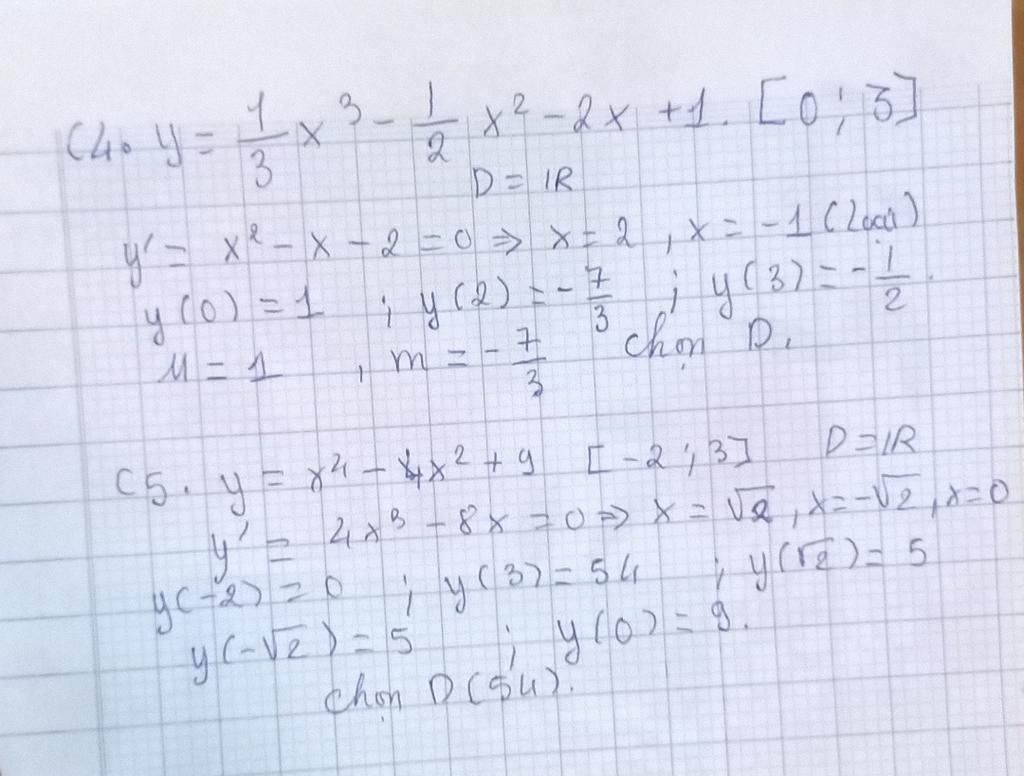 C4. y = 1/3 x³ - 1/2 x² - 2x + 1. [0 ; 3]
D = ℝ
y' = x² - x - 2 = 0 ⇒ x = 2 , x = -1 (loại)
y(0) = 1 ; y(2) = -7/3 ; y(3) = -1/2.
M = 1 , m = -7/3 chọn D.
C5. y = x⁴ - 4x² + 9 [-2 ; 3] D = ℝ
y' = 4x³ - 8x = 0 ⇒ x = √2 , x = -√2 , x = 0
y(-2) = 0 ; y(3) = 54 ; y(√2) = 5
y(-√2) = 5 ; y(0) = 9.
chọn D (54).